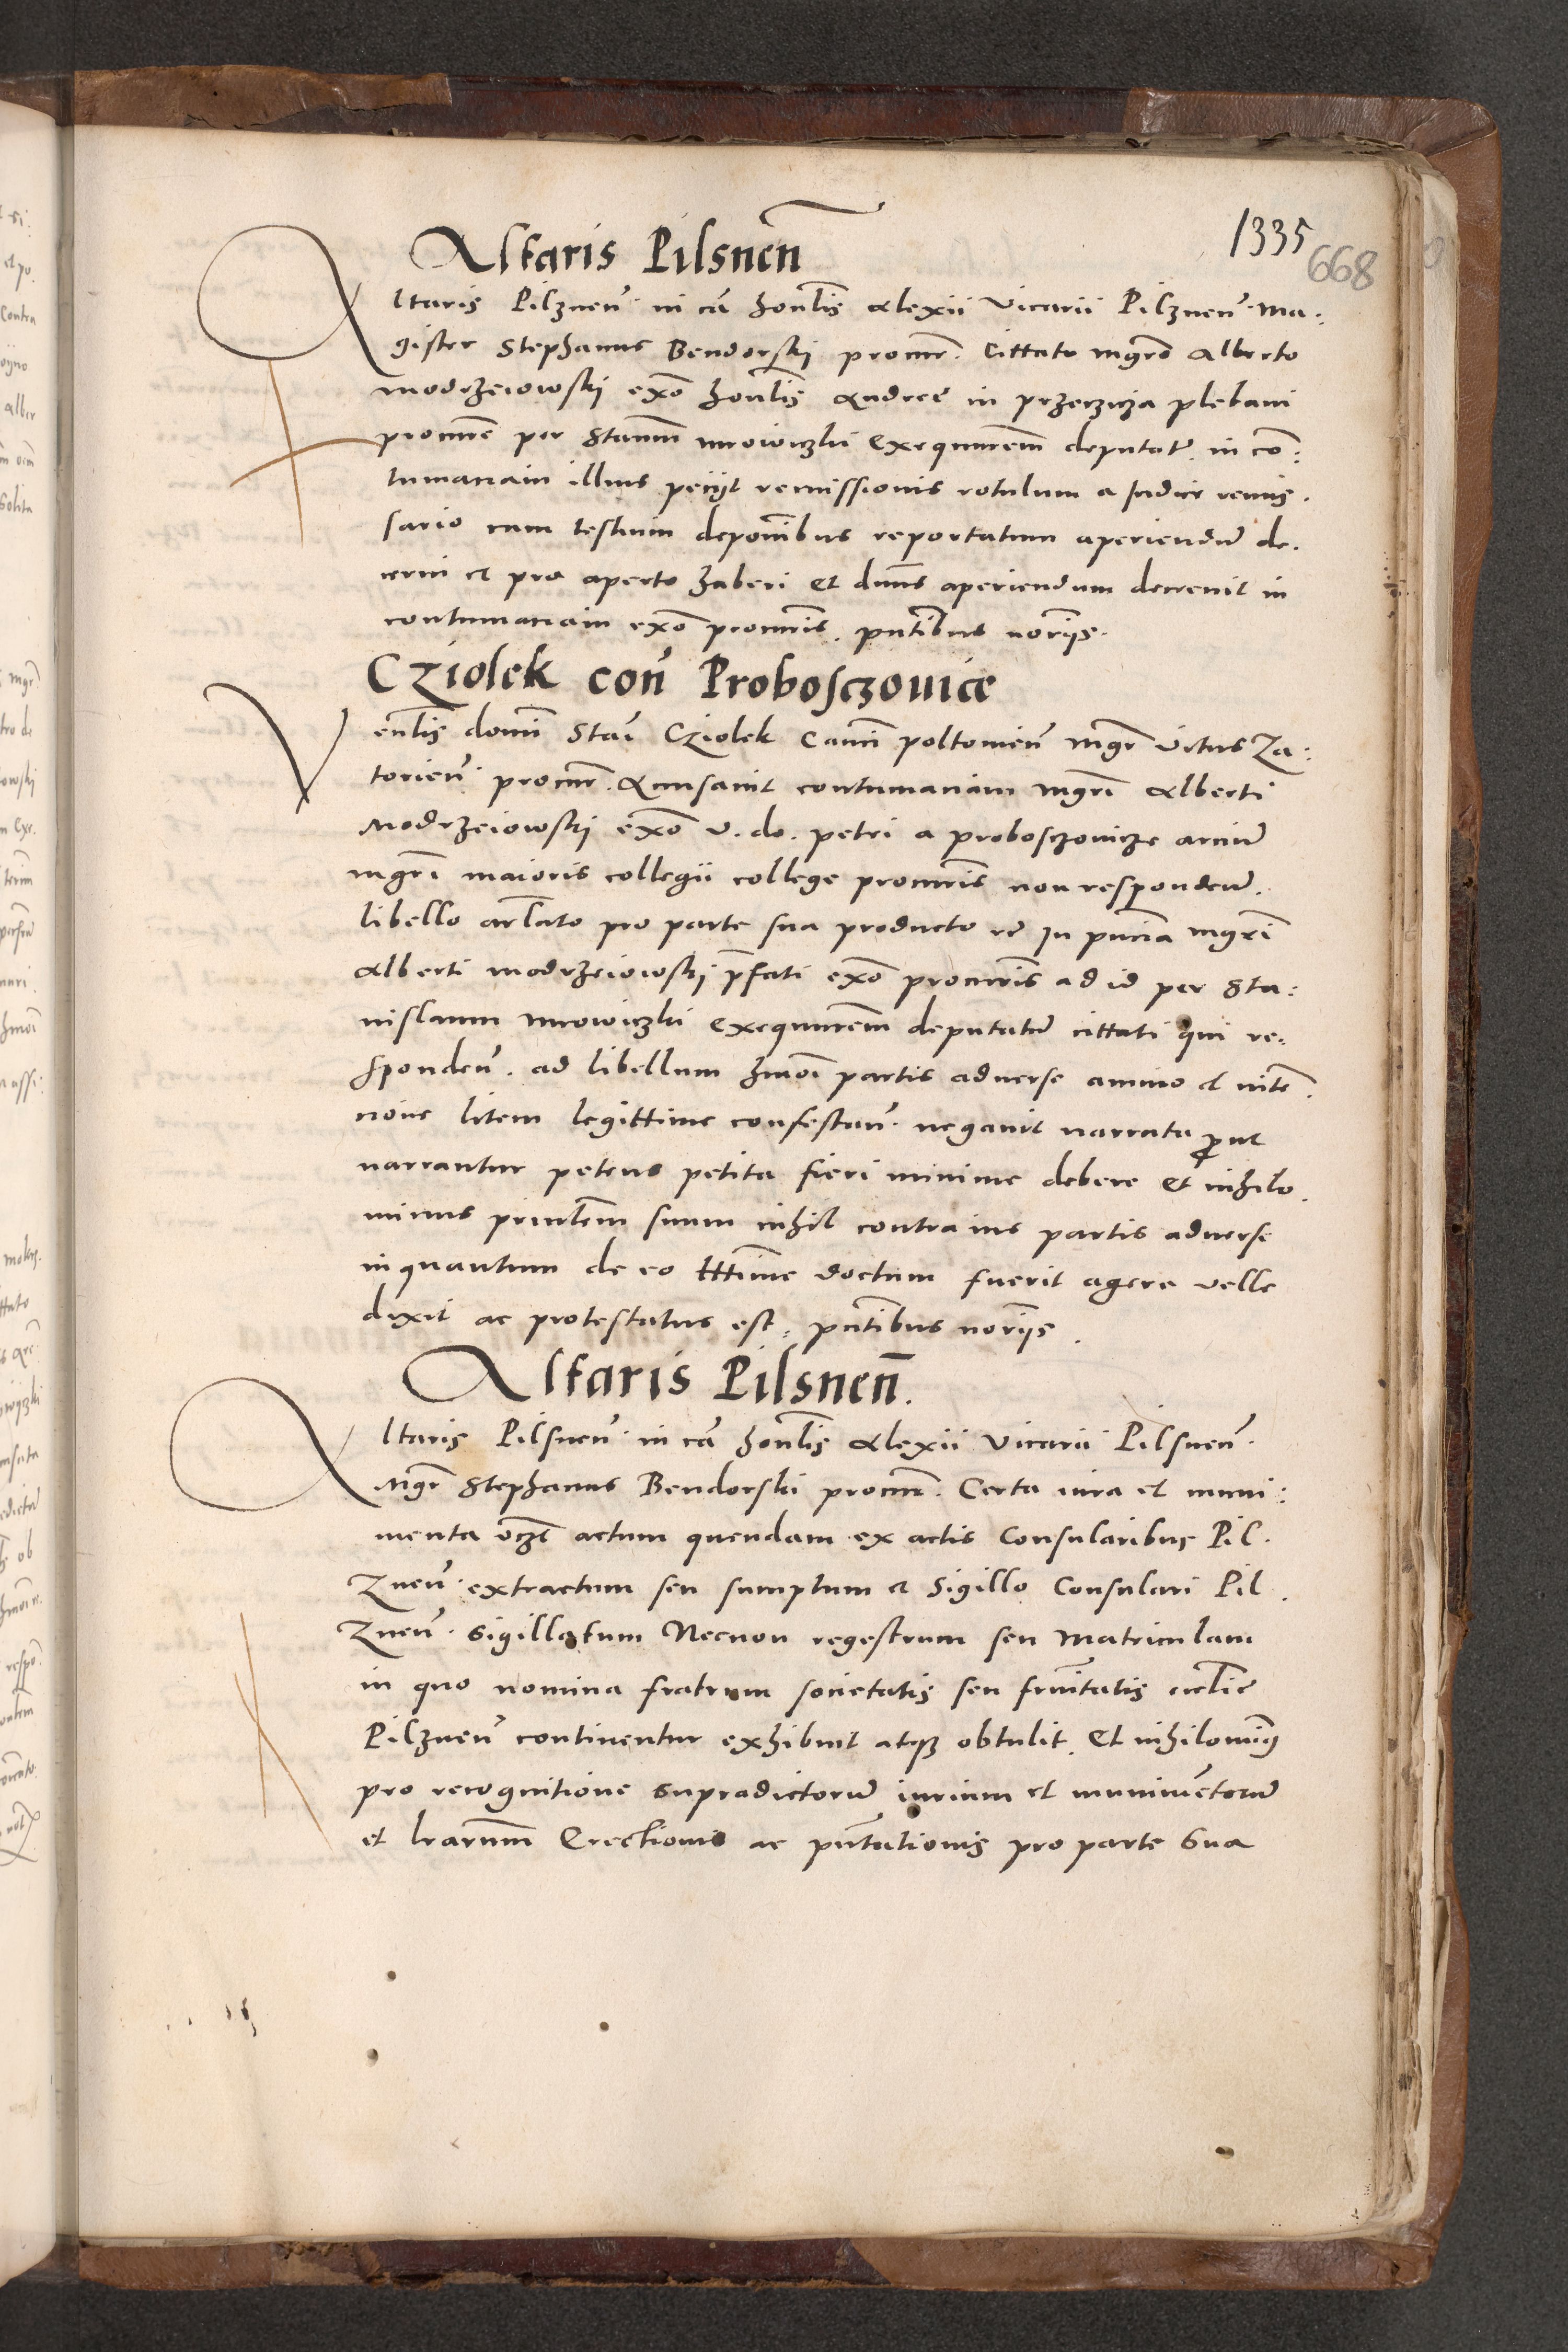 1335
668
Altaris Pilsnen̄
Altaris Pilznen̄ in cā hon̄lis Alexii vicarii Pilznen̄ Ma:
gister Stephanus Bendorski procur̄. Cittato mgr̄o Alberto
modrzeiowski ex̄o hon̄lis Andree in przeczicza plebani
procur̄e per Stan̄m mrowiczki exequut̄rem deputat̄. in co:
tumaciam illius peciit remissionis rotulum a Iudice remis.
sario cum testium depon̄ibus reportatum aperiendū de.
cerni et pro aperto haberi et dn̄us aperiendum decrevit in
contumaciam ex̄o procur̄is. pn̄tibus nor̄iis.
Cziolek con̄ Proboszczovicze
Ven̄lis domī Stāi Cziolek Can̄ci poltovien̄ mgr̄ vitus Za:
torien̄ procur̄. Accusavit contumaciam mgr̄i Alberti
Modrzeiowski ex̄o v. do. petri a probosczovicze arciū
mgr̄i maioris collegii college procur̄is non respondeñ.
libello ar̄lato pro parte sua producto re In pn̄cia mgr̄i
Alberti modrzeiowski p̄fati ex̄o procur̄is ad id per Sta:
nislaum mrowiczki exequut̄rem deputatū cittati qui re:
sponden̄. ad libellum hm̄oi partis adverse animo et inten̄.
cione litem legittime contestan̄ negavit narrata prout
narrantur petens petita fieri minime debere et nihilo.
minus prin̄lem suum nihil contra ius partis adverse
inquantum de eo ltt̄ime doctum fuerit agere velle
dixit ac protestatus est: pn̄tibus nor̄iis.
Altaris Pilsnen̄.
Altaris Pilsnen̄ in cā hon̄lis Alexii vicarii Pilsnen̄.
Mgr̄ Stephanus Bendorski procur̄. Certa iura et muni:
menta vcz̄ actum quendam ex actis Consularibus Pil.
Znen̄. extractum seu sumptum et Sigillo Consulari Pil.
Znen̄. Sigillatum Necnon regestrum seu Matriculam
in quo nomina fratrum societatis seu frat̄nitatis eccl̄ie
Pilznen̄ continentur exhibuit atqz obtulit. Et nihilomin9
pro recognitione supradictorū iurium et munimētorū
et lr̄arum Erectionis ac pn̄tationis pro parte sua